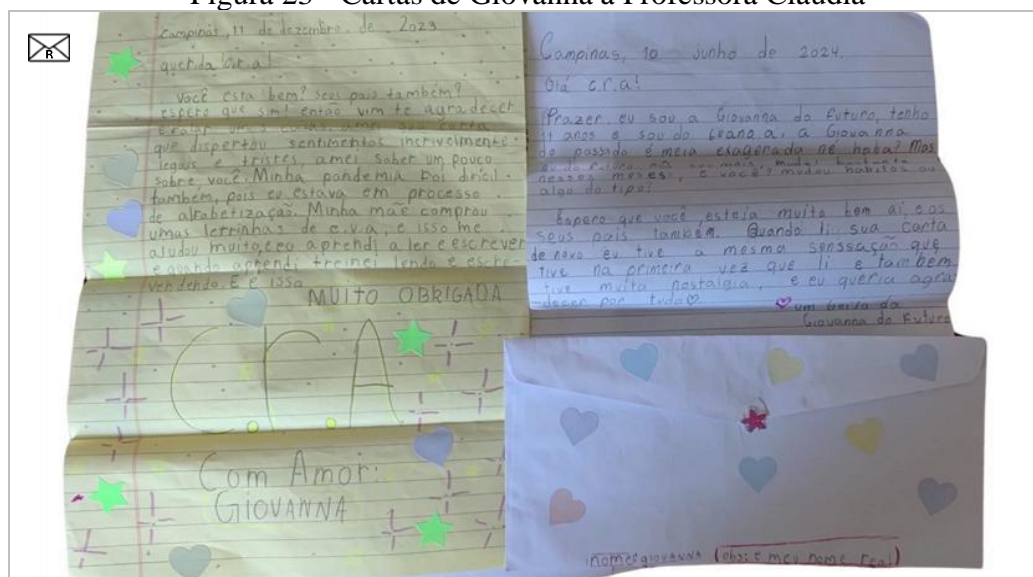 Figura 23 - Cartas de Giovanna à Professora Cláudia
R
Campinas, 11 de dezembro de 2023
querida c.r.a!
Você esta bem? seus pais também?
espero que sim! então vim te agradecer
e falar umas coisas, amei sua carta
que dispertou sentimentos incrivelmente
legais e tristes, amei saber um pouco
sobre você. Minha pandemia foi dificil
também, pois eu estava em processo
de alfabetização. Minha mãe comprou
umas letrinhas de e.v.a, e isso me
aludou muito, eu aprendi a ler e escrever
e quando aprendi treinei lendo e escre-
vendendo. E é isso
MUITO OBRIGADA
C.r.A
Com Amor:
GIOVANNA
Campinas, 10 junho de 2024.
Olá c.r.a!
Prazer, eu sou a Giovanna do futuro, tenho
11 anos e sou do ano a, a Giovanna
do passado é meia exagerada né haha? Mas
eu do futuro não sou mais, mudei bastante
nesses meses, e você? mudou habitos ou
algo do tipo?
Espero que você esteja muito bem ai, e os
seus pais também. Quando li sua carta
de novo eu tive a mesma senssação que
tive na primeira vez que li e também
tive muita nostalgia, e eu queria agra-
decer por tudo♡.
♡ um beijo da
Giovanna do Futuro
nome: giovanna (obs: é meu nome real)